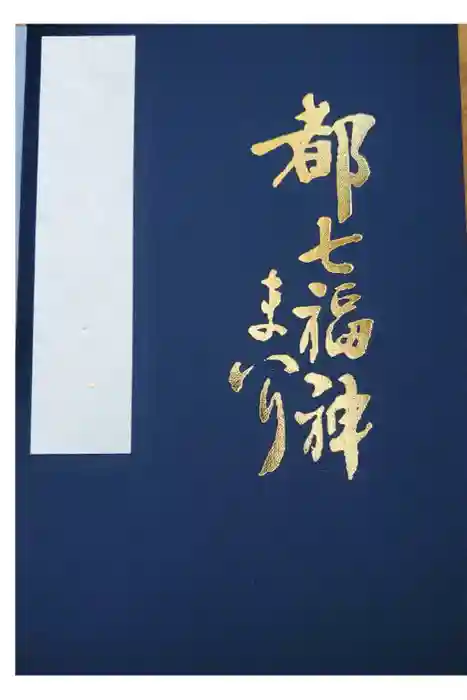 都七福神
まいり